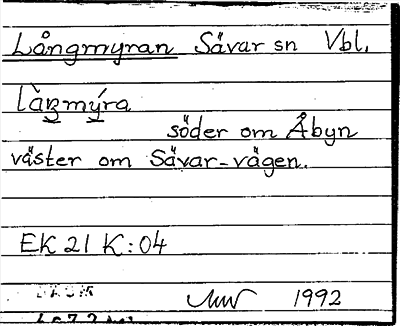 Långmyran Sävar sn Vbl.
làŋmýra
söder om Åbyn
väster om Sävar-vägen.
EK 21 K:04
1992